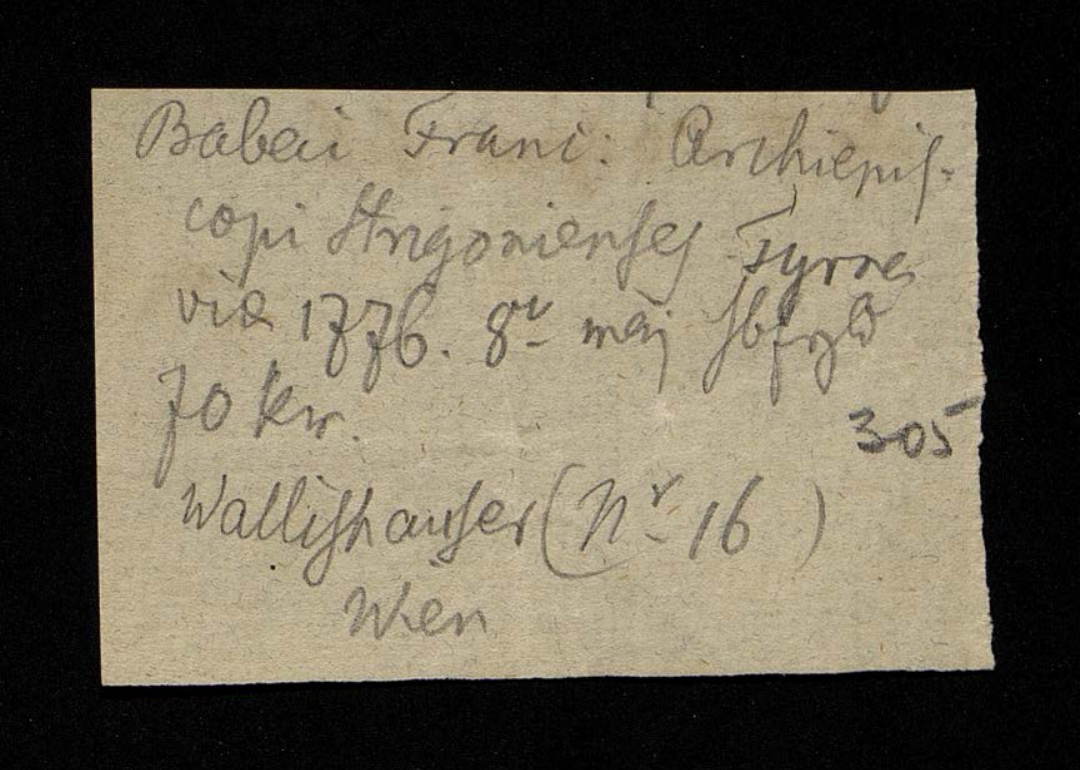 Babai Franc: Archiepis-
copi Strigonienses Tyrna
viæ 1776. 8v maj Hbfzld
70 kr.
305
Wallishauser (Nr. 16)
Wien